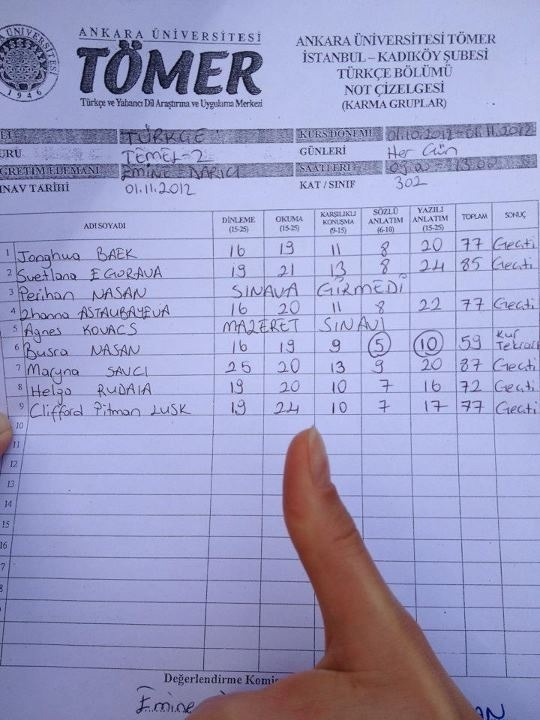 ANKARA ÜNİVERSİTESİ
TÖMER
Türkçe ve Yabancı Dil Araştırma ve Uygulama Merkezi
1946
ANKARA ÜNİVERSİTESİ TÖMER
İSTANBUL – KADIKÖY ŞUBESİ
TÜRKÇE BÖLÜMÜ
NOT ÇİZELGESİ
(KARMA GRUPLAR)
TÜRKÇE KURS DÖNEMİ
TEMEL-2 GÜNLERİ Her Gün
EMİNE DARICI SAATLERİ
SINAV TARİHİ 01.11.2012 KAT / SINIF 302
ADI SOYADI DİNLEME (15-25) OKUMA (15-25) KARŞILIKLI KONUŞMA (9-15) SÖZLÜ ANLATIM (6-10) YAZILI ANLATIM (15-25) TOPLAM SONUÇ
1 Jonghwa BAEK 16 19 11 8 20 77 Geçti
2 Svetlana EGORAVA 19 21 13 8 24 85 Geçti
3 Perihan NASAN SINAVA GİRMEDİ
4 Zhanna ASTAUBAYEVA 16 20 11 8 22 77 Geçti
5 Agnes KOVACS MAZERET SINAVI
6 Busra NASAN 16 19 9 5 10 59 Kur Tekrarı
7 Maryna SAVCI 25 20 13 9 20 87 Geçti
8 Helga RUDAIA 19 20 10 7 16 72 Geçti
9 Clifford Pitman LUSK 19 24 10 7 17 77 Geçti
10
11
12
13
14
15
16
Değerlendirme Komis
Emine